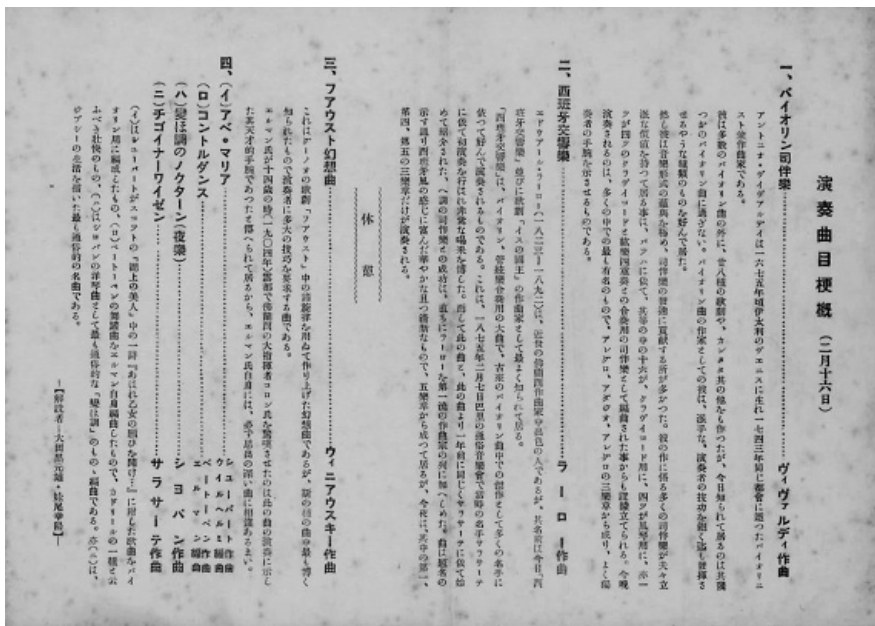 演奏曲目梗概 (二月十六日)
一、バイオリン司伴樂……ヴィヴァルディ作曲
アントニオ・ヴィヴァルディは一六七五年頃伊太利のヴェニスに生れ一七四三年同じ都會に逝つたバイオリニ
スト兼作曲家である。
彼は多數のバイオリン曲の外に、廿八種の歌劇や、カンタタ其の他をも作つたが、今日知られて居るのは其幾
つかのバイオリン曲に過ぎない。バイオリン曲の作家としての彼は、派手な、演奏者の技功を飽く迄も發揮さ
せるやうな種類のものを好んで居た。
然し彼は音樂形式の蘊奥を極め、司伴樂の發達に貢獻する所が多かつた。彼の作に係る多くの司伴樂が夫々立
派な價値を持つて居る事は、バッハに依て、其等の中の十六が、クラヴィコード用に、四ツが風琴用に、亦一
ツが四ツのクラヴィコードと絃樂四重奏との合奏用の司伴樂として編曲された事からも證據立てられる。今晩
演奏されるのは、多くの中での最も有名のもので、アレグロ、アダヂオ、アレグロの三樂章から成り、よく獨
奏者の手腕を示させるものである。
二、西班牙交響樂……ラーロー作曲
エドウアール・ラーロー(一八二三—一八九二)は、近世の佛蘭西作曲家中出色の人であるが、其名前は今日「西
班牙交響樂」並びに歌劇「イスの國王」の作曲家として最よく知られて居る。
「西班牙交響樂」は、バイオリン、管絃樂合奏用の大曲で、古來のバイオリン曲中での傑作として多くの名手に
依つて好んで演奏されるものである。これは、一八七五年二月七日巴里の通俗音樂會で當時の名手サラサーテ
に依て初演奏を行はれ非常な喝采を博した。而して此の曲と、此の曲より一年前に同じくサラサーテに依て始
めて紹介された、ヘ調の司伴樂との成功は、直ちにラーローを第一流の作曲家の列に加へしめた。曲は題名の
示す通り西班牙風の感じに富んだ華やかな且つ清新なもので、五樂章から成つて居るが、今夜は、其中の第一、
第四、第五の三樂章だけが演奏される。
休憩
三、フアウスト幻想曲……ウィニアウスキー作曲
これはグーノオの歌劇「フアウスト」中の諸旋律を用ゐて作り上げた幻想曲であるが、類の曲中最も博く
知られたもので演奏者に多大の技巧を要求する曲である。
エルマン氏が十四歳の時(一九〇四年)露都で佛蘭西の大指揮者コロンヌ氏を驚嘆させたのは此の曲の演奏に示し
た其天才的手腕であつたと傳へられて居るから、エルマン氏自身には、必ず思出の深い曲に相違あるまい。
四、(イ)アベ・マリア……シューバート作曲 ウイルヘルミ編曲
(ロ)コントルダンス……ベートーベン作曲 エルマン編曲
(ハ)變ほ調のノクターン(夜樂)……ショパン作曲
(ニ)チゴイナーワイゼン……サラサーテ作曲
(イ)はシューバートがスコットの「湖上の美人」中の一詩『あはれ乙女の願ひを聞け…』に附した歌曲をバイ
オリン用に編成したもの、(ロ)ベートーベンの舞踏曲をエルマン自身編曲したもので、カドリールの一種と云
ふべき壯快のもの、(ハ)はショパンの洋琴曲として最も通俗的な「變ほ調」のもの、編曲である。亦(ニ)は、
ジプシーの生活を描いた最も通俗的の名曲である。
—【解說者—大田黑元雄・妹尾幸陽】—